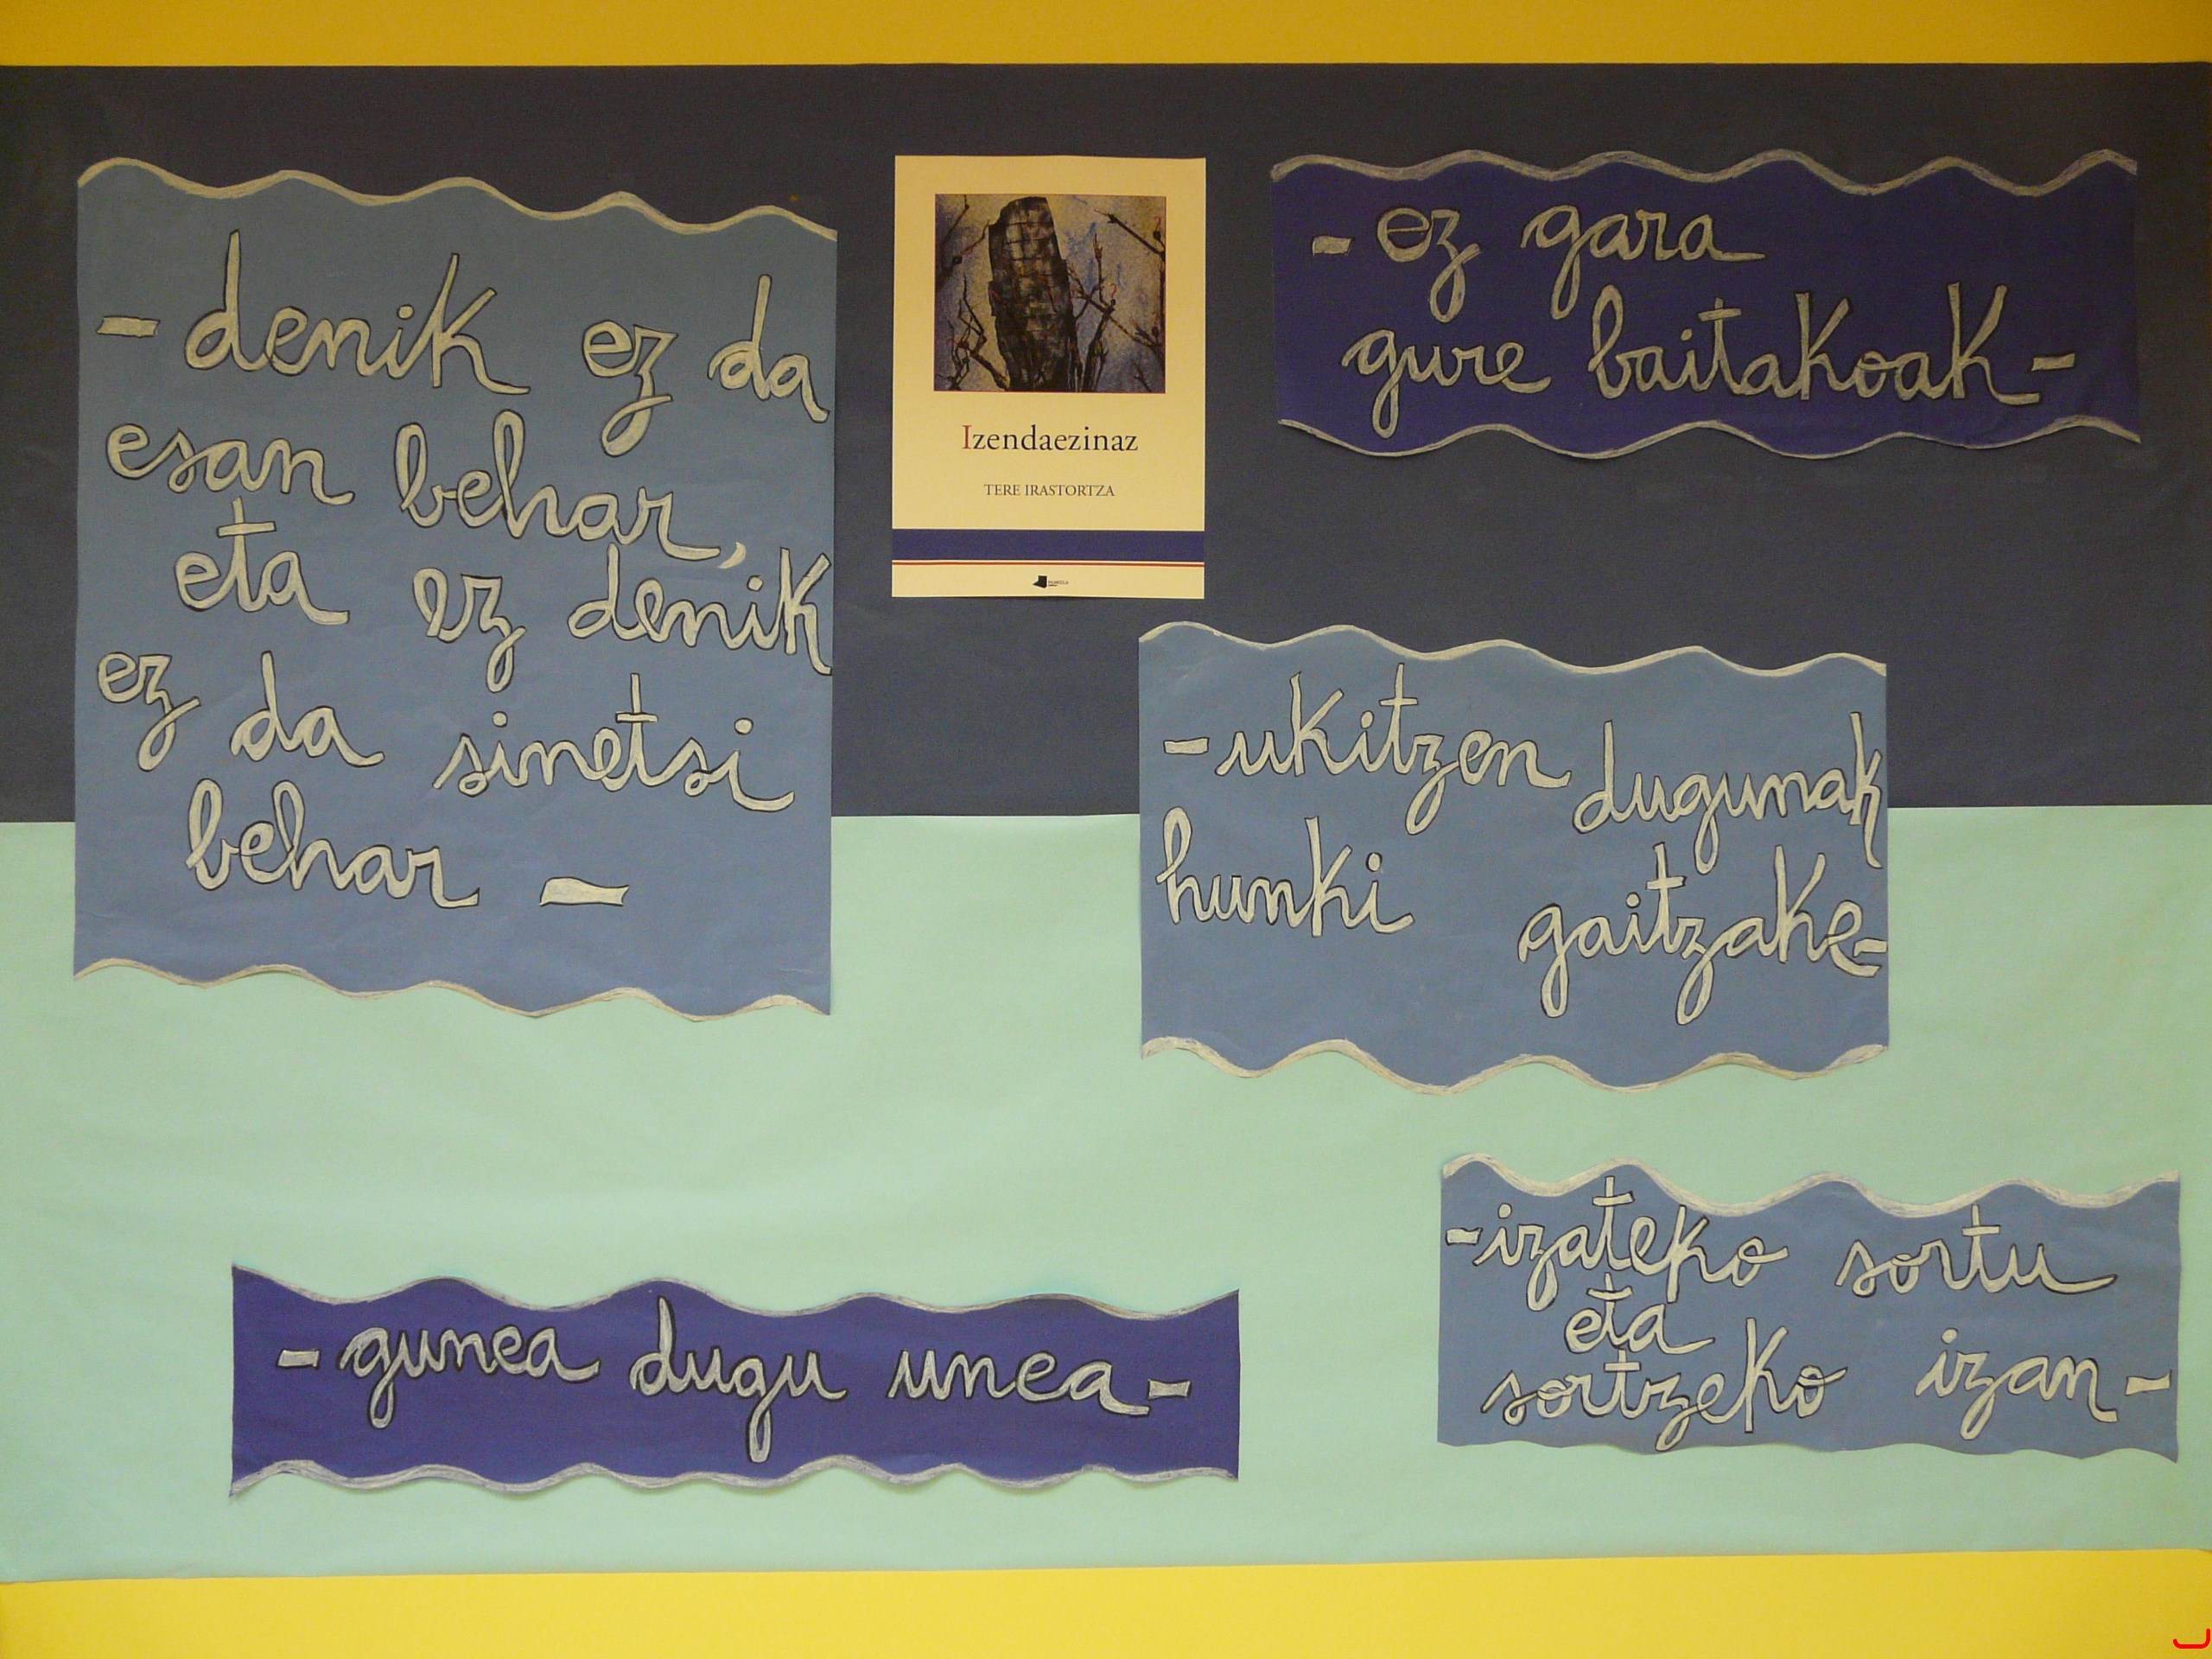 - denik ez da
esan behar,
eta ez denik
ez da sinetsi
behar -
Izendaezinaz
TERE IRASTORTZA
- ez gara
gure baitakoak -
- ukitzen dugunak
hunki gaitzake -
- gunea dugu unea -
- izateko sortu
eta
sortzeko izan -